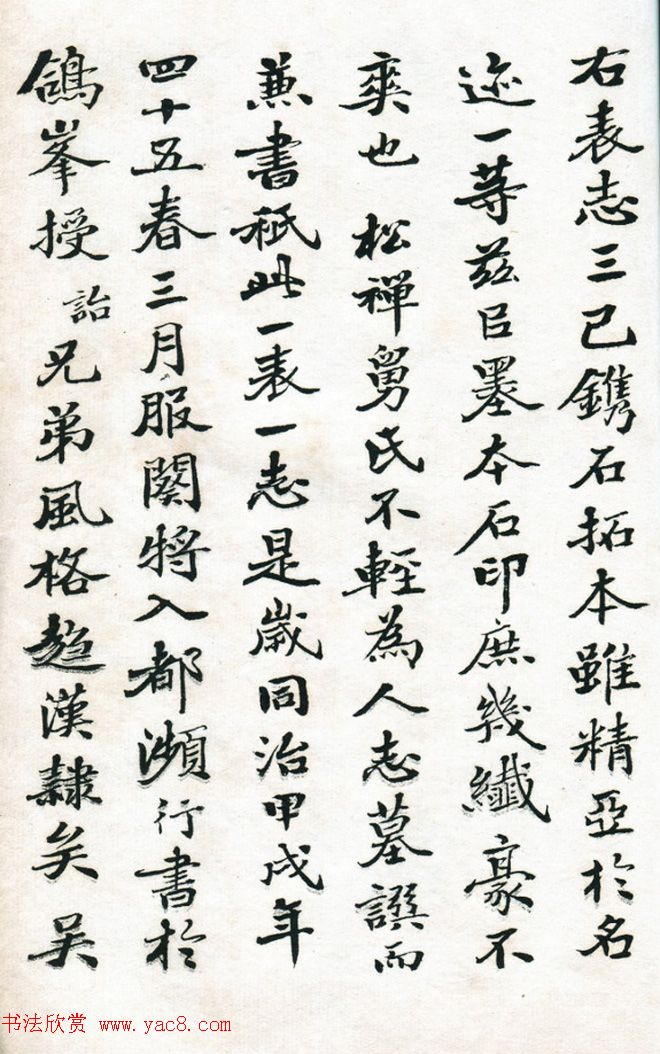 右表志三已鐫石拓本雖精亞於名
迹一等茲㠯墨本石印庶幾纖豪不
爽也 松禪舅氏不輕為人志墓譔而
兼書秖此一表一志是歲同治甲戌年
四十五春三月服闋將入都瀕行書於
鴿峯授 詒 兄弟風格趍漢隸矣 吴
书法欣赏 www.yac8.com